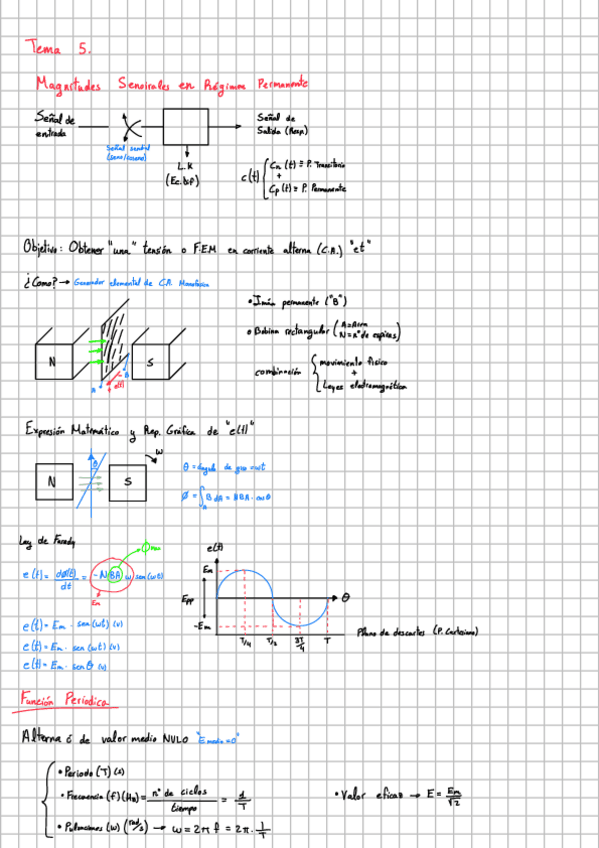 Tema 5.
Magnitudes Senoirales en Régimen Permanente
Señal de entrada
Señal de Salida (Resp.)
Señal senoidal (seno/coseno)
L.K
(Ec. Dif)
c(t) { Cn (t) ≡ P. Transitorio
+
Cp (t) ≡ P. Permanente
Objetivo: Obtener "una" tensión o F.EM en corriente alterna (C.A.) "et"
¿Como? → Generador elemental de C.A. Monofásica
• Imán permanente ("B")
• Bobina rectangular (A=Area
N=nº de espiras)
combinación { movimiento físico
+
Leyes electromagnética
N
S
A
B
e(t)
Expresión Matemático y Rep. Gráfica de "e(t)"
N
S
θ
w
θ = ángulo de giro = wt
Ø = ∫A B dA = NBA · cos θ
Ley de Farady
Ømax
e(t) = dØ(t)/dt = -NBA w sen(wt)
Em
e(t) = Em · sen(wt) (v)
e(t) = Em · sen (wt) (v)
e(t) = Em · sen θ (v)
e(t)
Em
Epp
-Em
θ
T/4
T/2
3T/4
T
Plano de descartes (P. Cartesiano)
Función Periodica
Alterna ó de valor medio NULO "E medio = 0"
• Periodo (T) (s)
• Frecuencia (f) (Hz) = nº de ciclos / tiempo = 1/T
• Pulsaciones (w) (rad/s) → w = 2π f = 2π · 1/T
• Valor eficaz → E = Em/√2